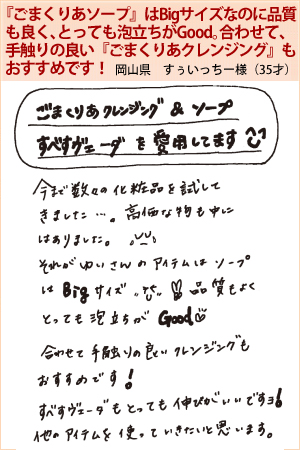 『ごまくりあソープ』はBigサイズなのに品質
も良く、とっても泡立ちがGood。合わせて、
手触りの良い『ごまくりあクレンジング』も
おすすめです！ 岡山県 すぅいっちー様（35才）
ごまくりあクレンジング & ソープ
すべすヴェーダ を愛用してます
今まで数々の化粧品を試して
きました…。高価な物も中に
はありました。
それがゆいさんのアイテムはソープ
は Big サイズ 品質もよく
とっても泡立ちが Good
合わせて手触りの良いクレンジングも
おすすめです！
すべすヴェーダもとっても伸びがいいですヨ！
他のアイテムを使っていきたいと思います。